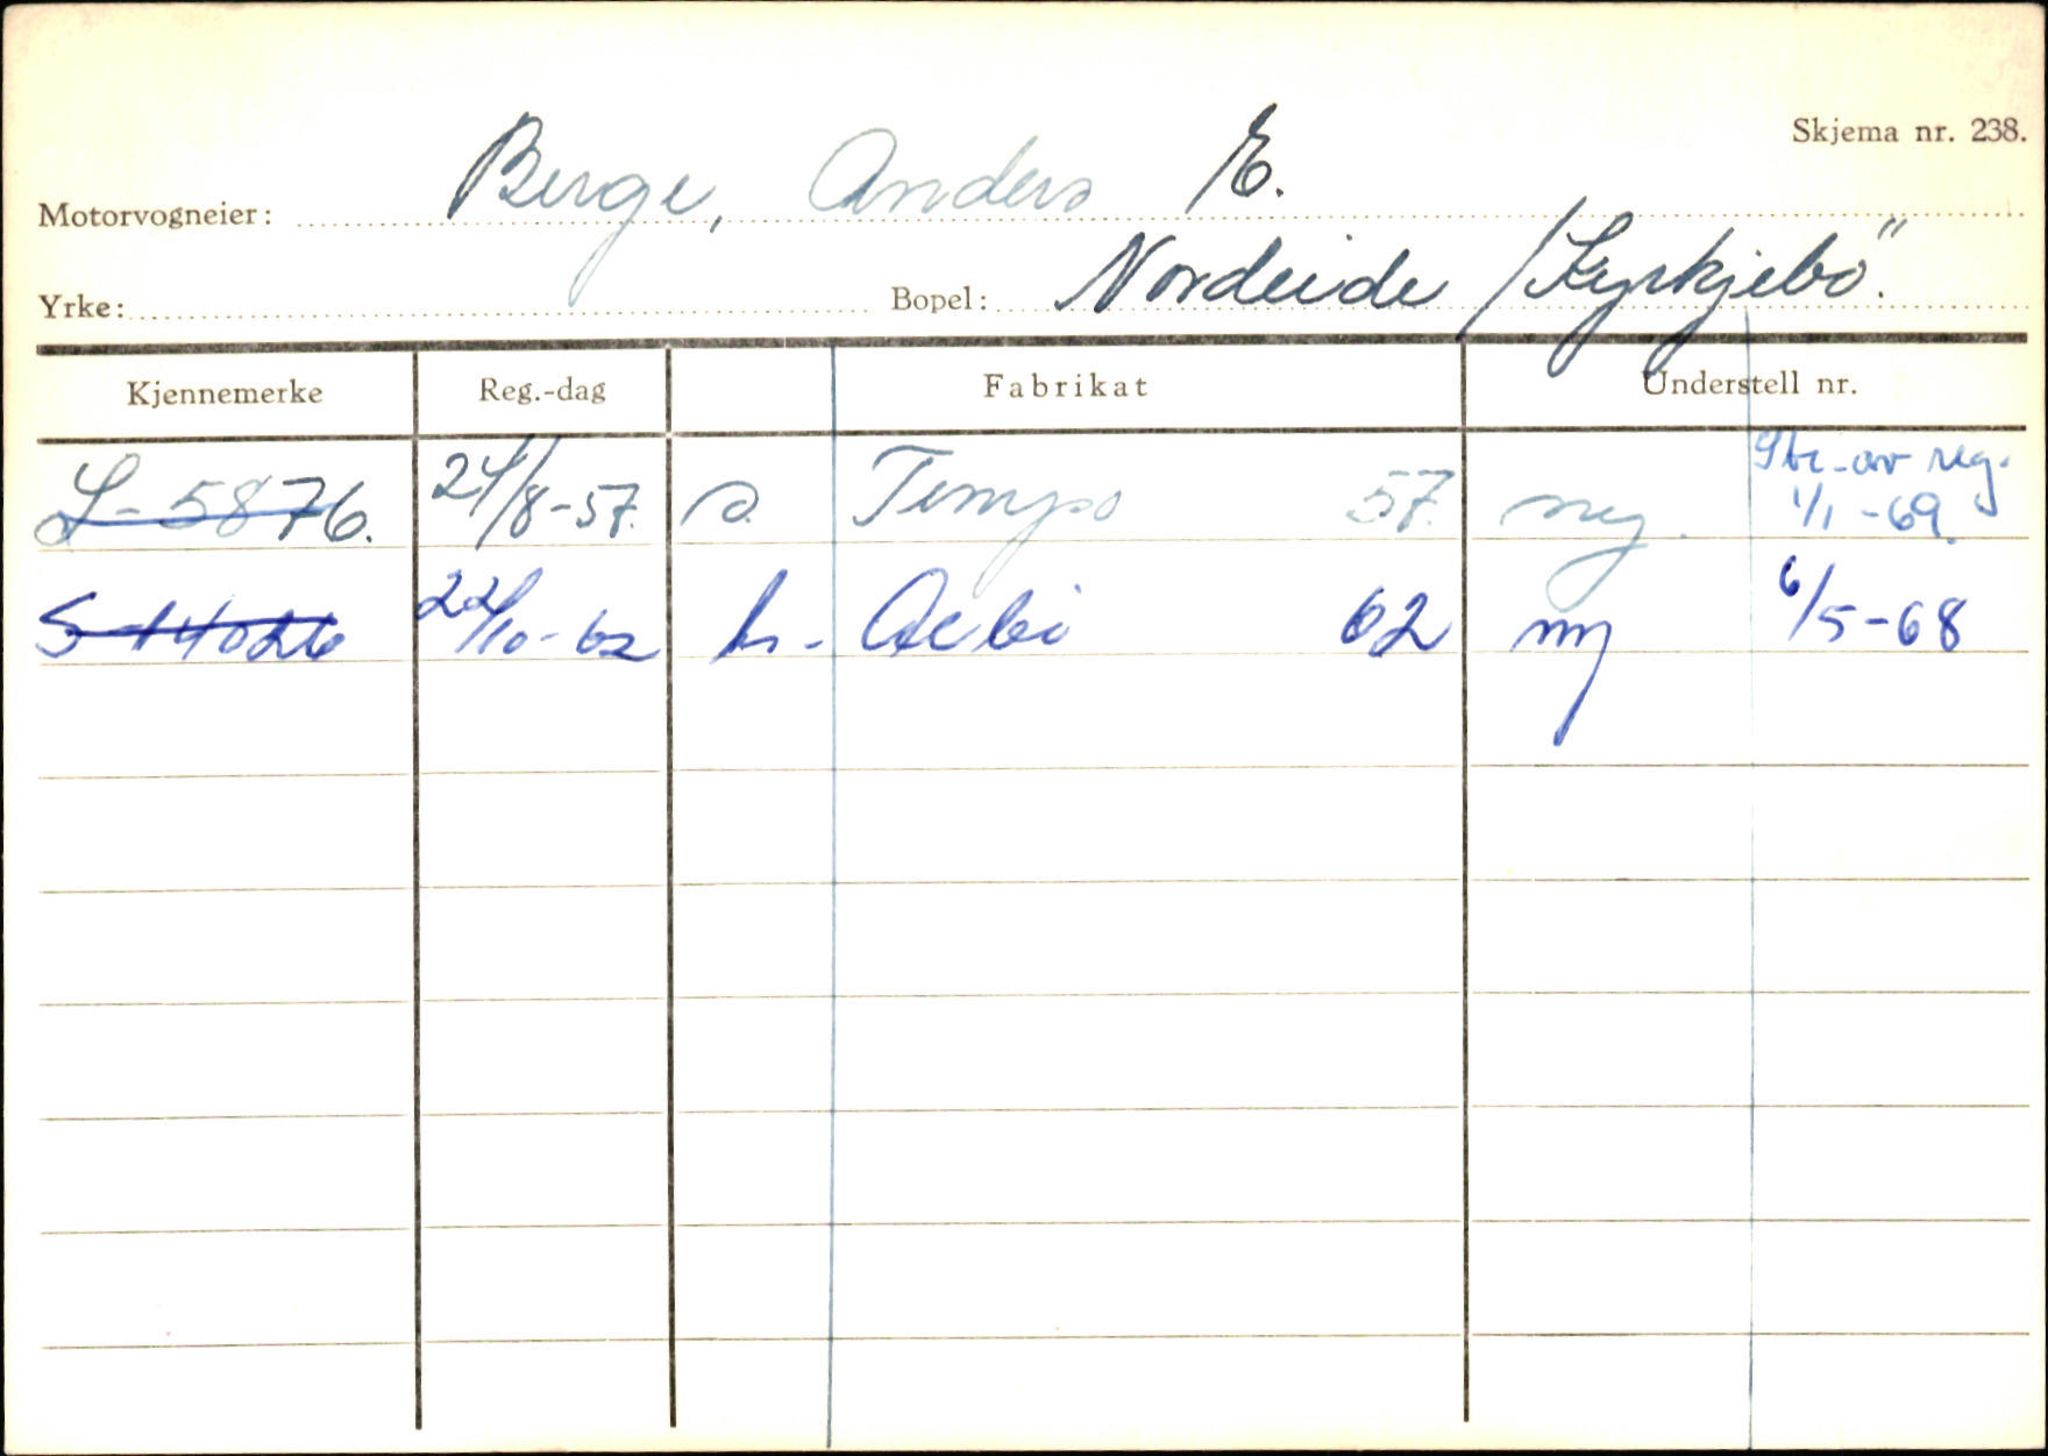 Skjema nr. 238.
Motorvogneier: Berge, Anders E.
Yrke: Bopel: Nordeide / Kyrkjebö.
Kjennemerke Reg.-dag Fabrikat Understell nr.
S-5876. 24/8-57. s. Tempo 57. ny. Str. av reg. 1/1-69.
S-14026 22/10-62 Aebi 62 ny 6/5-68